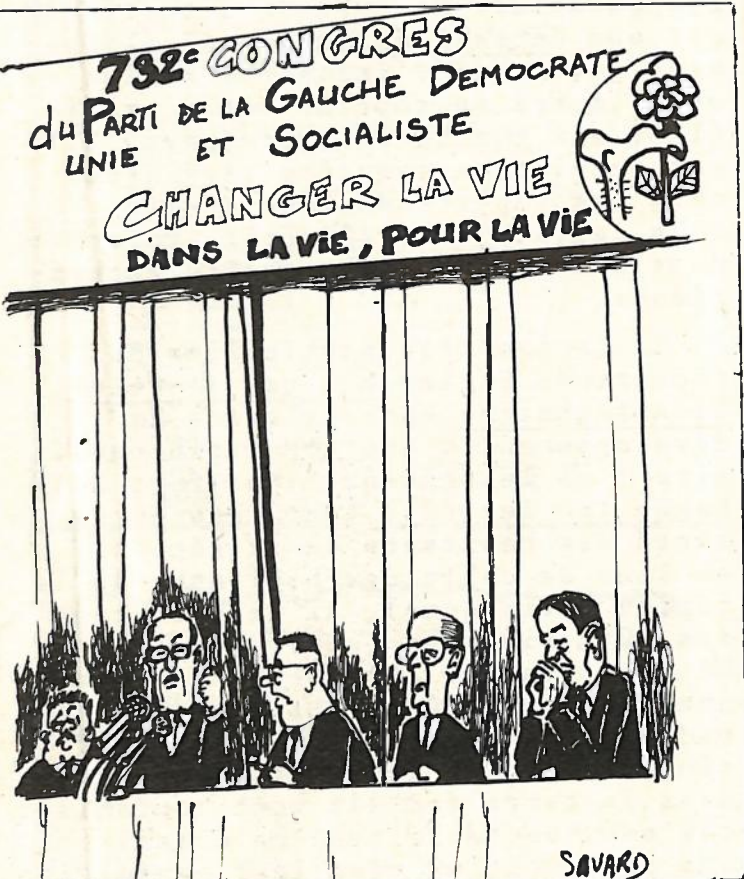 732e CONGRES
du PARTI DE LA GAUCHE DEMOCRATE
UNIE ET SOCIALISTE
CHANGER LA VIE
DANS LA VIE, POUR LA VIE
SAVARD